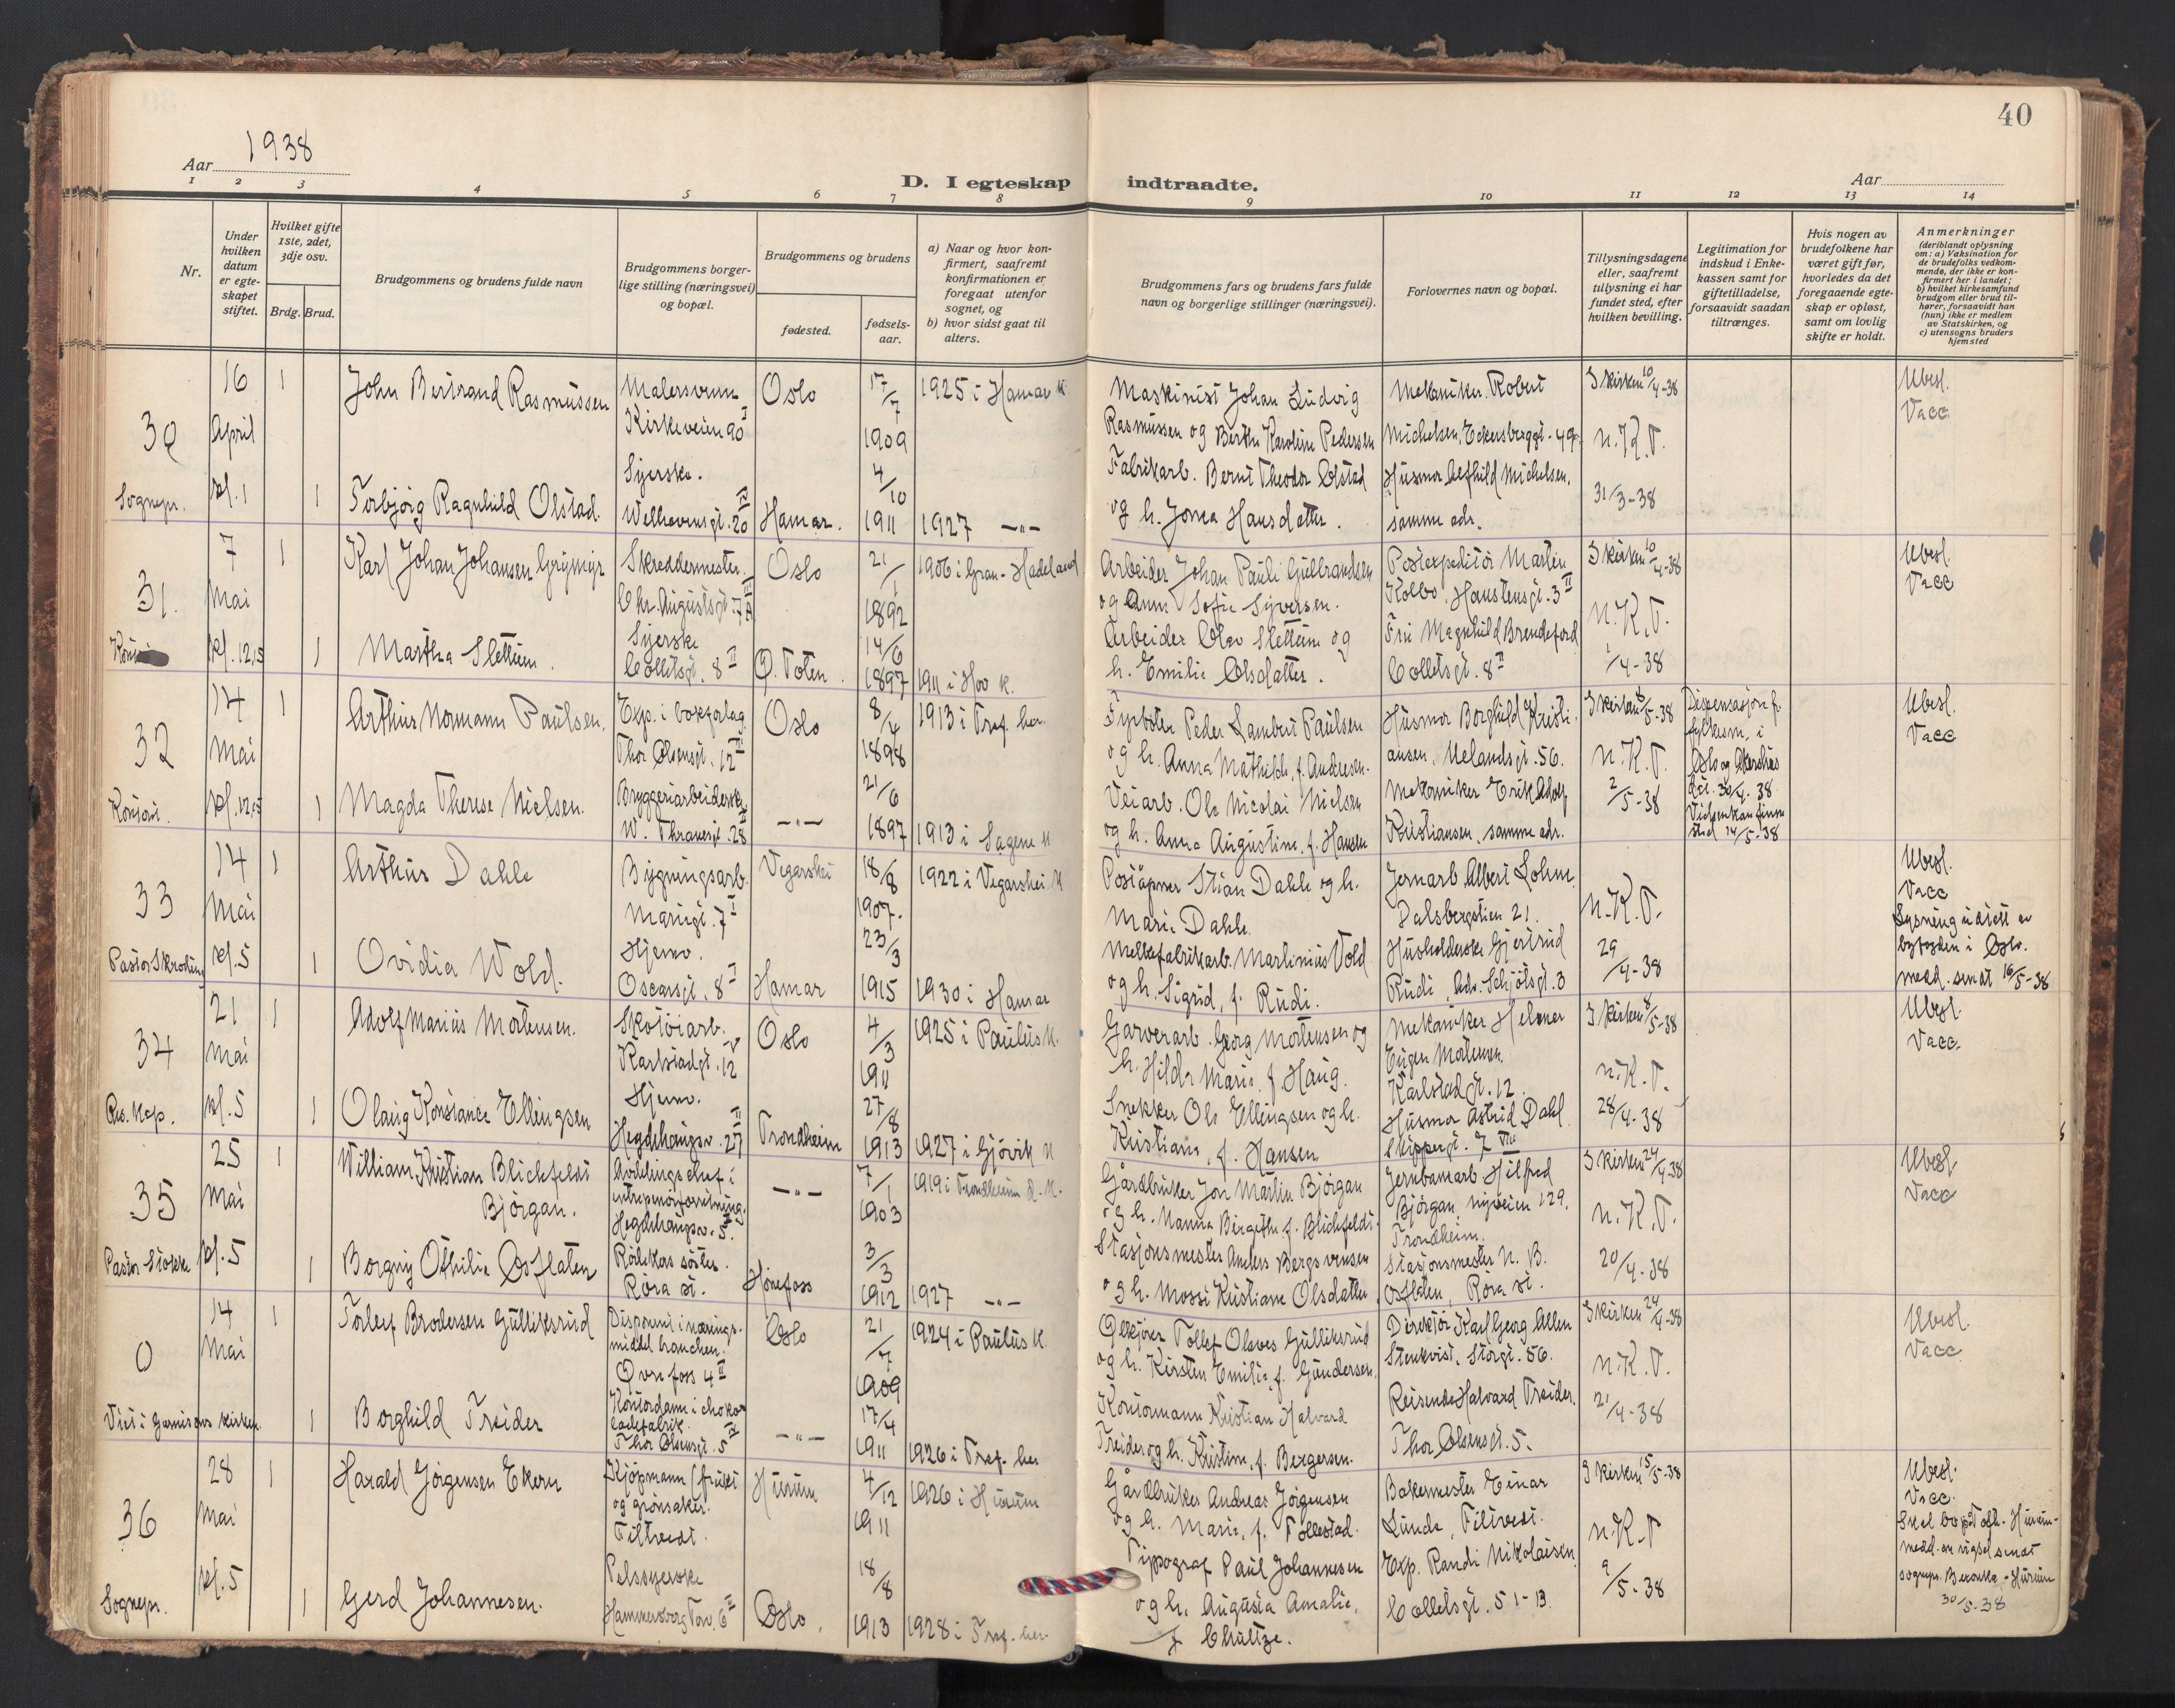 40
Aar 1938
D. I egteskap indtraadte.
Aar
1 2 3 4 5 6 7 8 9 10 11 12 13 14
Nr.
Under hvilken datum er egteskapet stiftet.
Hvilket gifte 1ste, 2det, 3dje osv.
Brdg. Brud.
Brudgommens og brudens fulde navn
Brudgommens borgerlige stilling (næringsvei) og bopæl.
Brudgommens og brudens
fødested.
fødselsaar.
a) Naar og hvor konfirmert, saafremt konfirmationen er foregaat utenfor sognet, og
b) hvor sidst gaat til alters.
Brudgommens fars og brudens fars fulde navn og borgerlige stillinger (næringsvei).
Forlovernes navn og bopæl.
Tillysningsdagene eller, saafremt tillysning ei har fundet sted, efter hvilken bevilling.
Legitimation for indskud i Enkekassen samt for giftetilladelse, forsaavidt saadan tiltrænges.
Hvis nogen av brudefolkene har været gift før, hvorledes da det foregaaende egteskap er opløst, samt om lovlig skifte er holdt.
Anmerkninger
(deriblandt oplysning om: a) Vaksination for de brudefolks vedkommende, der ikke er konfirmert her i landet;
b) hvilket kirkesamfund brudgom eller brud tilhører, forsaavidt han (hun) ikke er medlem av Statskirken, og
c) utensogns bruders hjemsted
30 Sognepr.
16 April kl. 1
1 John Bertrand Rasmussen
Malersvenn Kirkeveien 90 I
Oslo
17/7 1909
1925 i Hamar K.
Maskinist Johan Ludvig Rasmussen og Berthe Karoline Pedersen
Mekaniker Robert Michelsen, Eckersbergsgt. 49
I kirken 10/4-38
n.K.T.
31/3-38
Ubesl.
Vacc.
1 Torbjørg Ragnhild Olstad.
Syerske. Welhavensgt. 20 IV
Hamar.
4/10 1911
1927 —"—
Fabrikarb. Bernt Theodor Olstad og h. Jonea Hansdatter.
Husmor Alfhild Michelsen, samme adr.
31. Kontor
7 Mai kl. 12,15
1 Karl Johan Johansen Grymyr
Skreddermester. Chr. Augustsgt. 7
Oslo
21/1 1892
1906 i Gran - Hadeland
Arbeider Johan Pauli Gulbrandsen og Anne Sofie Syversen.
Postexpeditør Martin Kolbo, Haustensgt. 3 II
I kirken 10/4-38
n.K.T.
1/4-38
Ubesl.
Vacc
1 Martha Slettum.
Syerske Collettsgt. 8 II
Ø. Toten.
14/6 1897
1911 i Hov K.
Arbeider Olav Slettum og h. Emilie Olsdatter.
Fru Magnhild Brendeford Collettsgt. 8 II
32 Kontor.
14 Mai kl. 12,15
1 Arthur Normann Paulsen.
Exp. i bokforlag Thor Olsensgt. 12 III
Oslo
8/4 1898
1913 i Tref. her.
Fyrbøter Peder Lambert Paulsen og h. Anna Mathilde, f. Andresen.
Husmor Borghild Kristiansen, Uelandsgt. 56.
I kirken 8/5-38
n.K.T.
2/5-38
Dispensasjon f. fylkesm. i Oslo og Akershus dat. 30/4. 38.
Vielsen kan finne sted 14/5-38
Ubesl.
Vacc
1 Magda Therese Nielsen.
Bryggeriarbeiderske W. Thranesgt. 28
—"—
21/6 1897
1913 i Sagene K
Veiarb. Ole Nicolai Nielsen og h. Anna Augustine, f. Hansen
Mekaniker Erik Adolf Kristiansen, samme adr.
33 Pastor Skroding
14 Mai kl. 5
1 Arthur Dahle
Bygningsarb. Mariegt. 7 I
Vegarshei
18/8 1907.
1922 i Vegarshei K
Poståpner Stian Dahle og h. Marie Dahle.
Jernarb. Albert Lohne. Dalsbergstien 21.
n.K.T.
29/4-38
Ubesl.
Vacc
Lysning utstett av byfogden i Oslo.
medd. sendt 16/5-38
1 Ovidia Wold.
Hjemv. Oscarsgt. 8 I
Hamar
23/3 1915
1930 i Hamar
Melkefabrikarb. Martinius Vold og h. Sigrid, f. Rudi.
Husholderske Gjertrud Rudi, Adv. Schjøtsgt. 3
34 Res. Kap.
21 Mai kl. 5
1 Adolf Marius Mortensen.
Skotøiarb. Karlstadgt. 12 V
Oslo
4/3 1911
1925 i Paulus K.
Garverarb. Georg Mortensen og h. Hilda Marie, f. Haug.
Mekaniker Helmer Eugen Mortensen Karlstadgt. 12.
I kirken 8/5-38
n.K.T.
28/4-38
Ubesl.
Vacc.
1 Olaug Konstance Ellingsen
Hjemv. Hegdehaugsv. 27 III
Trondheim
27/8 1913
1927 i Gjøvik K
Snekker Ole Ellingsen og h. Kristiane, f. Hansen
Husmor Astrid Dahl Skippergt. 7 VIII
35 Pastor Stokke
25 Mai kl. 5
1 William Kristian Blichfeldt Bjørgan.
Avdelingschef i entreprenørforretning. Hegdehaugsv. 5.
—"—
7/1 1903
1919 i Trondheim d. K.
Gårdbruker Jon Martin Bjørgan og h. Nanna Birgitte f. Blichfeldt.
Jernbanearb. Hilfred Bjørgan, Nyveien 129, Trondheim.
I kirken 24/4-38
n.K.T.
20/4-38
Ubesl.
Vacc
1 Borgny Othilie Osflaten
Rødekors søster. Røra st.
Hønefoss
3/3 1912
1927 —"—
Stasjonsmester Anders Bergsvensen og h. Mossi Kristiane Olsdatter
Stasjonsmester N. B. Osflaten, Røra st.
0 Viet i Garnisons kirken.
14 Mai
1 Torleif Brodersen Gulliksrud
Disponent i næringsmiddel branchen. Øvre foss 4 II
Oslo
21/7 1909
1924 i Paulus K.
Ølkjører Tollef Olaves Gulliksrud og h. Kirsten Emilie, f. Gundersen.
Direktør Karl Georg Allen Stenkvist, Storgt. 56.
I kirken 24/4-38
n.K.T.
21/4-38
Ubesl.
Vacc
1 Borghild Treider
Kontordame i chokoladefabrik. Thor Olsensgt. 5 IV
—"—
17/4 1911
1926 i Tref. her
Kontormann Kristian Halvard Treider og h. Kristine, f. Bergersen.
Reisende Halvard Treider. Thor Olsensgt. 5.
36 Sognepr.
28 Mai kl. 5
1 Harald Jørgensen Ekern
Kjøpmann (frukt og grønsaker. Filtvedt.
Hurum
4/12 1911
1926 i Hurum
Gårdbruker Andreas Jørgensen og h. Marie, f. Tollestad.
Bakermester Einar Lunde, Filtvedt.
I kirken 15/5-38
n.K.T
9/5-38
Ubesl.
Vacc.
Skal bo på Tofte - Hurum -
medd. om vigsel sendt
sognepr. - Hurum
30/5-38
1 Gerd Johannesen.
Pelssyerske Hammersborg Torv. 6 II
Oslo.
18/8 1913
1928 i Tref. her.
Typograf Paul Johannesen og h. Augusta Amalie, f. Chultze.
Exp. Randi Nikolaisen. Collettsgt. 51-B.